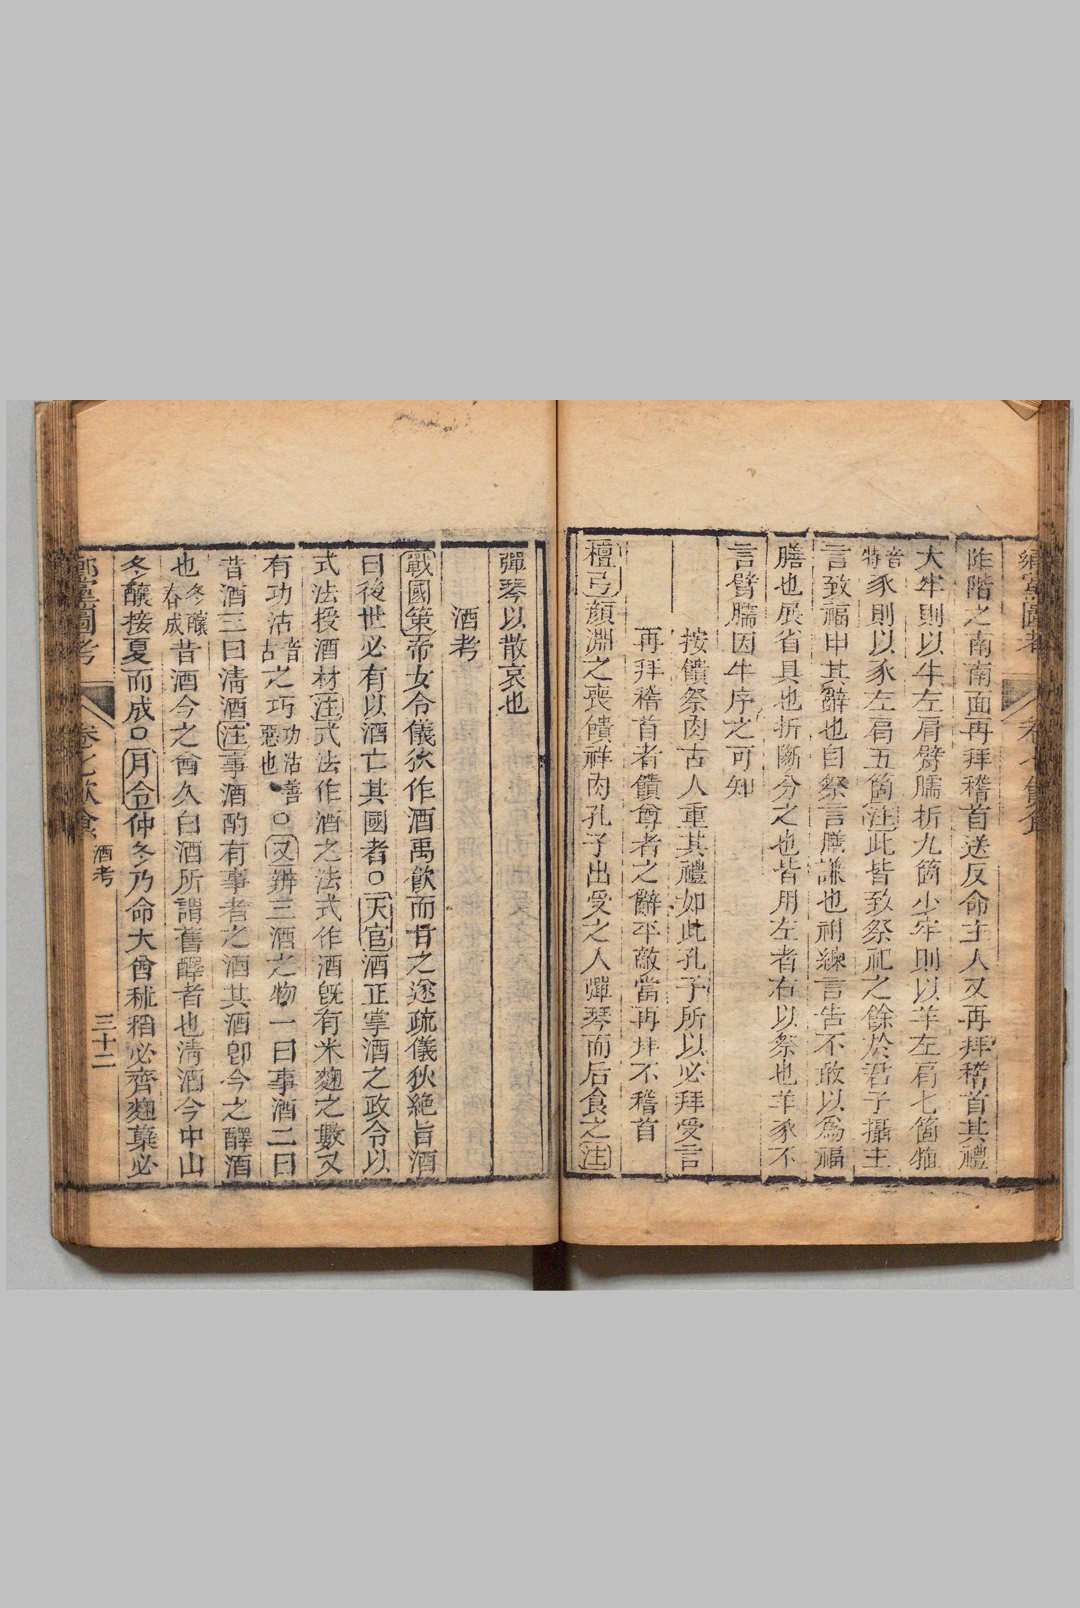 阼階之南南面再拜稽首送反命主人又再拜稽首其禮
大牢則以牛左肩臂臑折九箇少牢則以羊左肩七箇犆
音特豕則以豕左肩五箇注此皆致祭祀之餘於君子攝主
言致福申其辭也自祭言膳謙也祔練言告不敢以爲福
膳也展省具也折斷分之也皆用左者右以祭也羊豕不
言臂臑因牛序之可知
按饋祭肉古人重其禮如此孔子所以必拜受言
再拜稽首者饋尊者之辭平敵當再拜不稽首
檀弓顏淵之喪饋祥肉孔子出受之入彈琴而后食之注
彈琴以散哀也
酒考
戰國策帝女令儀狄作酒禹飲而甘之遂疏儀狄絶旨酒
曰後世必有以酒亡其國者○天官酒正掌酒之政令以
式法授酒材注式法作酒之法式作酒旣有米麴之數又
有功沽音古之巧功沽善惡也○又辨三酒之物一曰事酒二曰
昔酒三曰淸酒注事酒酌有事者之酒其酒卽今之醳酒
也冬釀春成昔酒今之酋久白酒所謂舊醳者也淸酒今中山
冬釀接夏而成○月令仲冬乃命大酋秫稻必齊麴蘗必
鄉黨圖考 卷七飲食 酒考 三十二